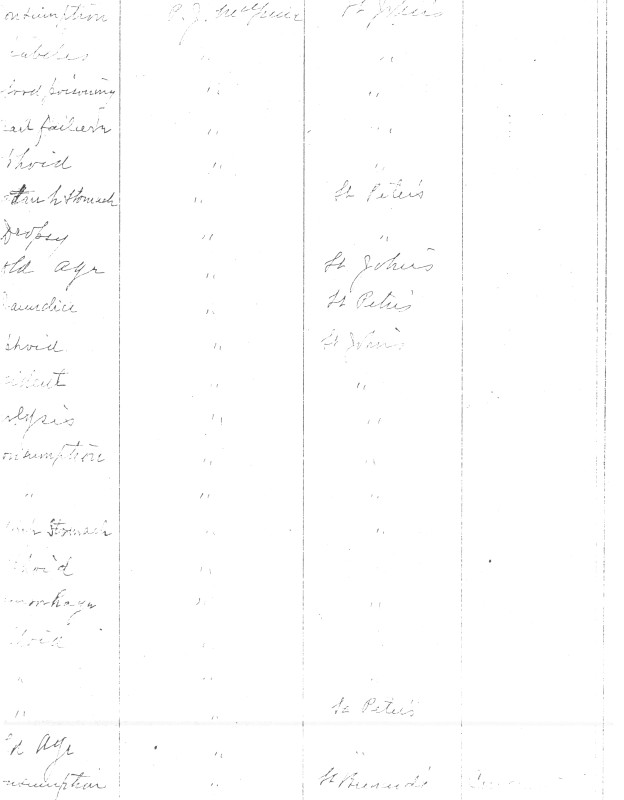 onsumption P. J. McGuire St John's
iabetes " "
lood poisoning " "
eart failure " "
phoid " "
h Stomach " St Peter's
Dropsy " "
old age " St John's
Jaundice " St Peter's
phoid " St John's
cident " "
alysis " "
onsumption " "
" " "
Stomach " "
hoid "
morhage " "
phoid "
" "
" " St Peter's
ld Age " "
nsumption "